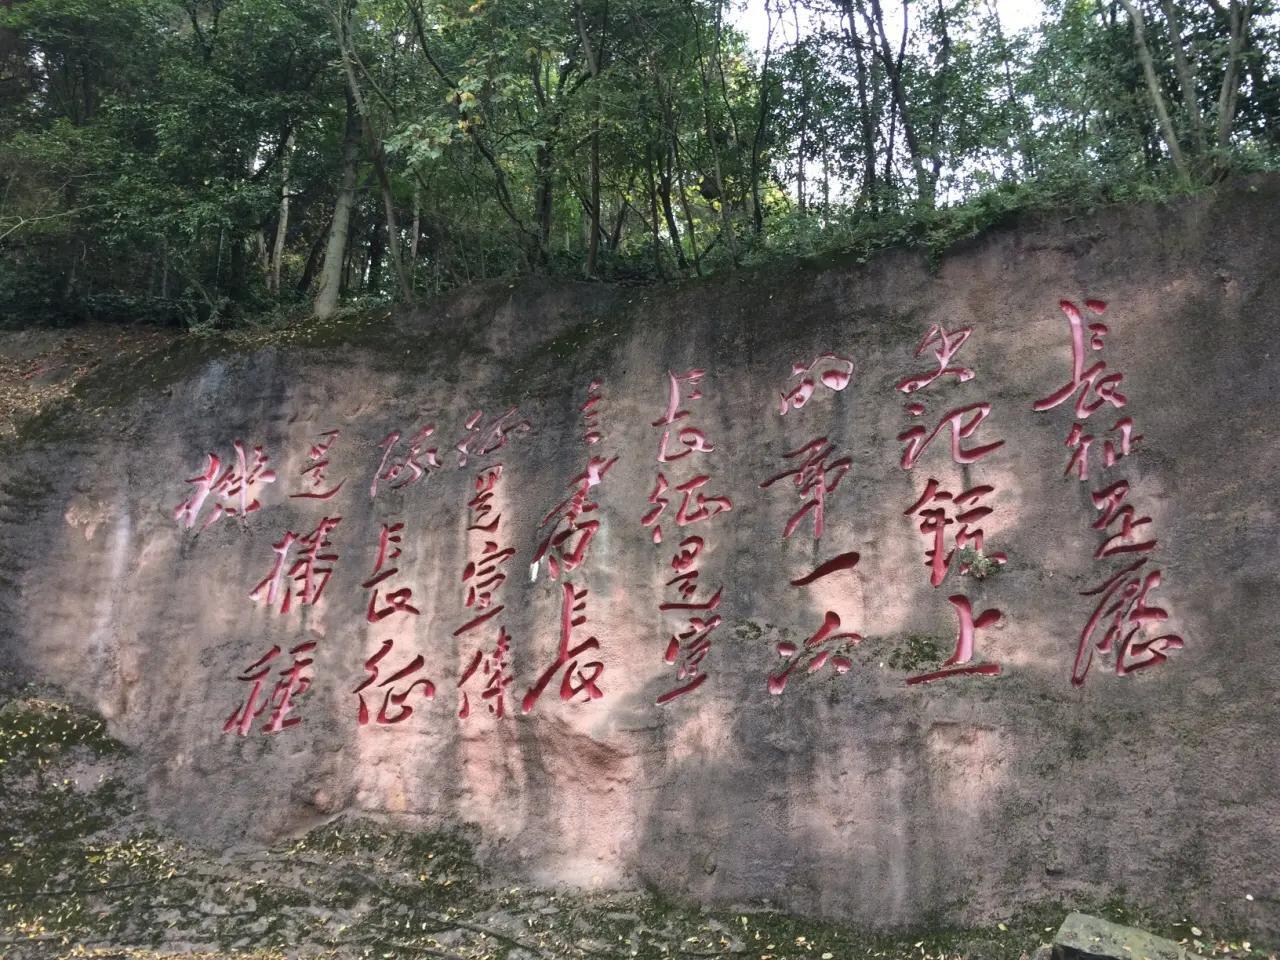 長征是歷
史記錄上
的第一次
長征是宣
言書長
征是宣傳
隊長征
是播種
機